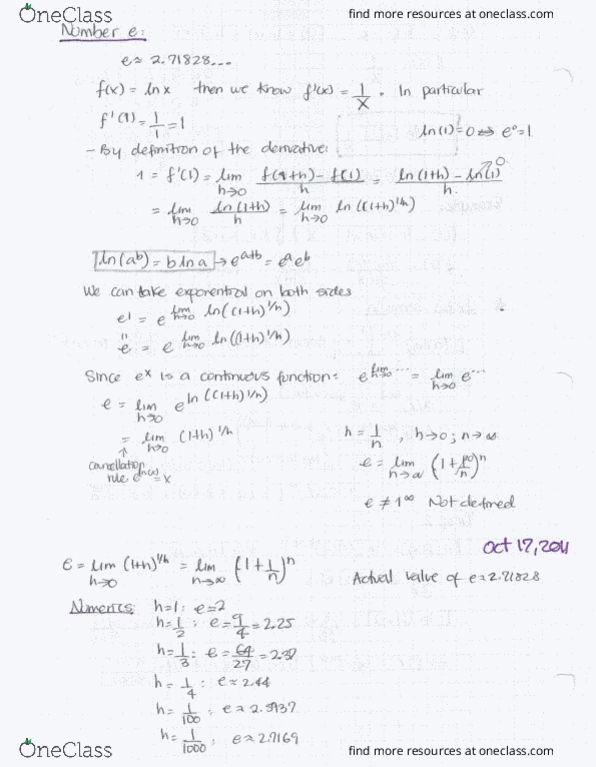 OneClass
find more resources at oneclass.com
Number e:
e ≈ 2.71828...
f(x) = ln x then we know f'(x) = 1/x . In particular
f'(1) = 1/1 = 1
ln(1) = 0 ⇔ e⁰ = 1
- By definition of the derivative:
1 = f'(1) = lim h→0 (f(1+h) - f(1))/h = (ln(1+h) - ln(1)→0)/h
= lim h→0 ln(1+h)/h = lim h→0 ln((1+h)^1/h)
ln(a^b) = b ln a → e^a+b = e^a e^b
We can take exponential on both sides
e¹ = e^lim h→0 ln((1+h)^1/h)
"
e = e^lim h→0 ln((1+h)^1/h)
Since e^x is a continuous function: e^lim h→0 ... = lim h→0 e^...
e = lim h→0 e^ln((1+h)^1/h)
= lim h→0 (1+h)^1/h
h = 1/n , h→0 ; n→∞
↑
cancellation
rule e^ln(x) = x
e = lim n→∞ (1 + 1/n)^n
e ≠ 1^∞ Not defined
Oct 17, 2011
e = lim h→0 (1+h)^1/h = lim n→∞ (1 + 1/n)^n
Actual value of e ≈ 2.71828
Numerics: h=1 : e=2
h=1/2 : e = 9/4 = 2.25
h=1/3 : e = 64/27 = 2.37
h = 1/4 : e ≈ 2.44
h = 1/100 : e ≈
h = 1/1000 : e ≈ 2.7169
OneClass
find more resources at oneclass.com